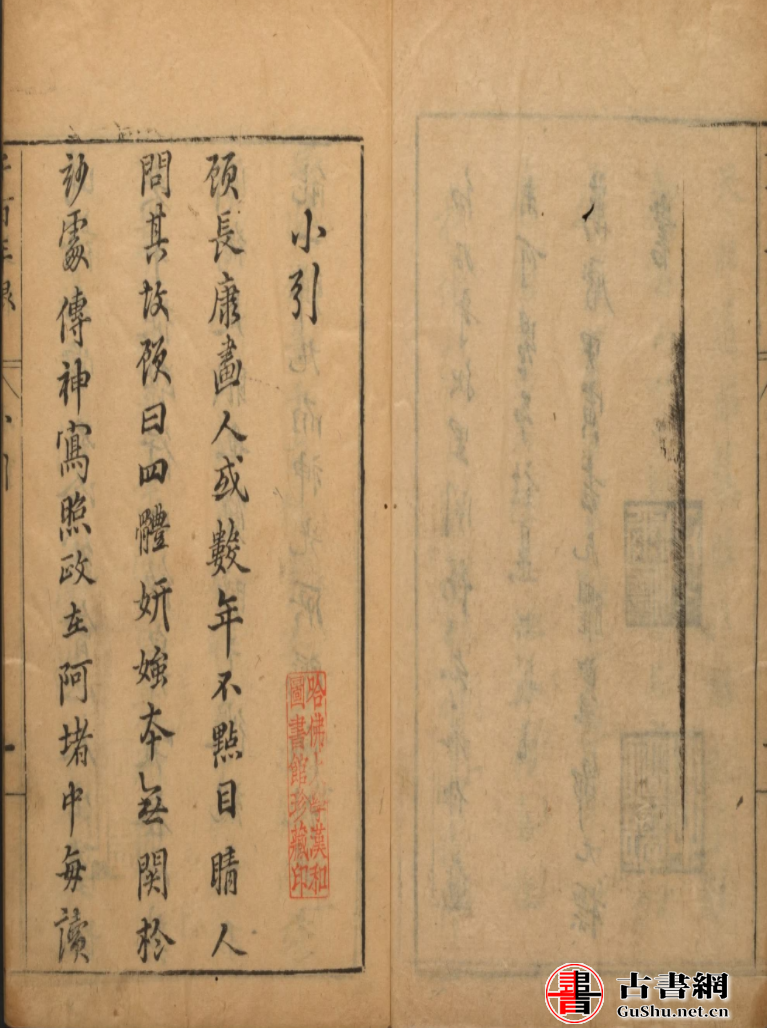 小引
顧長康畫人或數年不點目睛人
問其故顧曰四體妍媸本無關於
妙處傳神寫照政在阿堵中每讀
小引
哈佛大學漢和
圖書館珍藏印
書
古書網
GuShu.net.cn